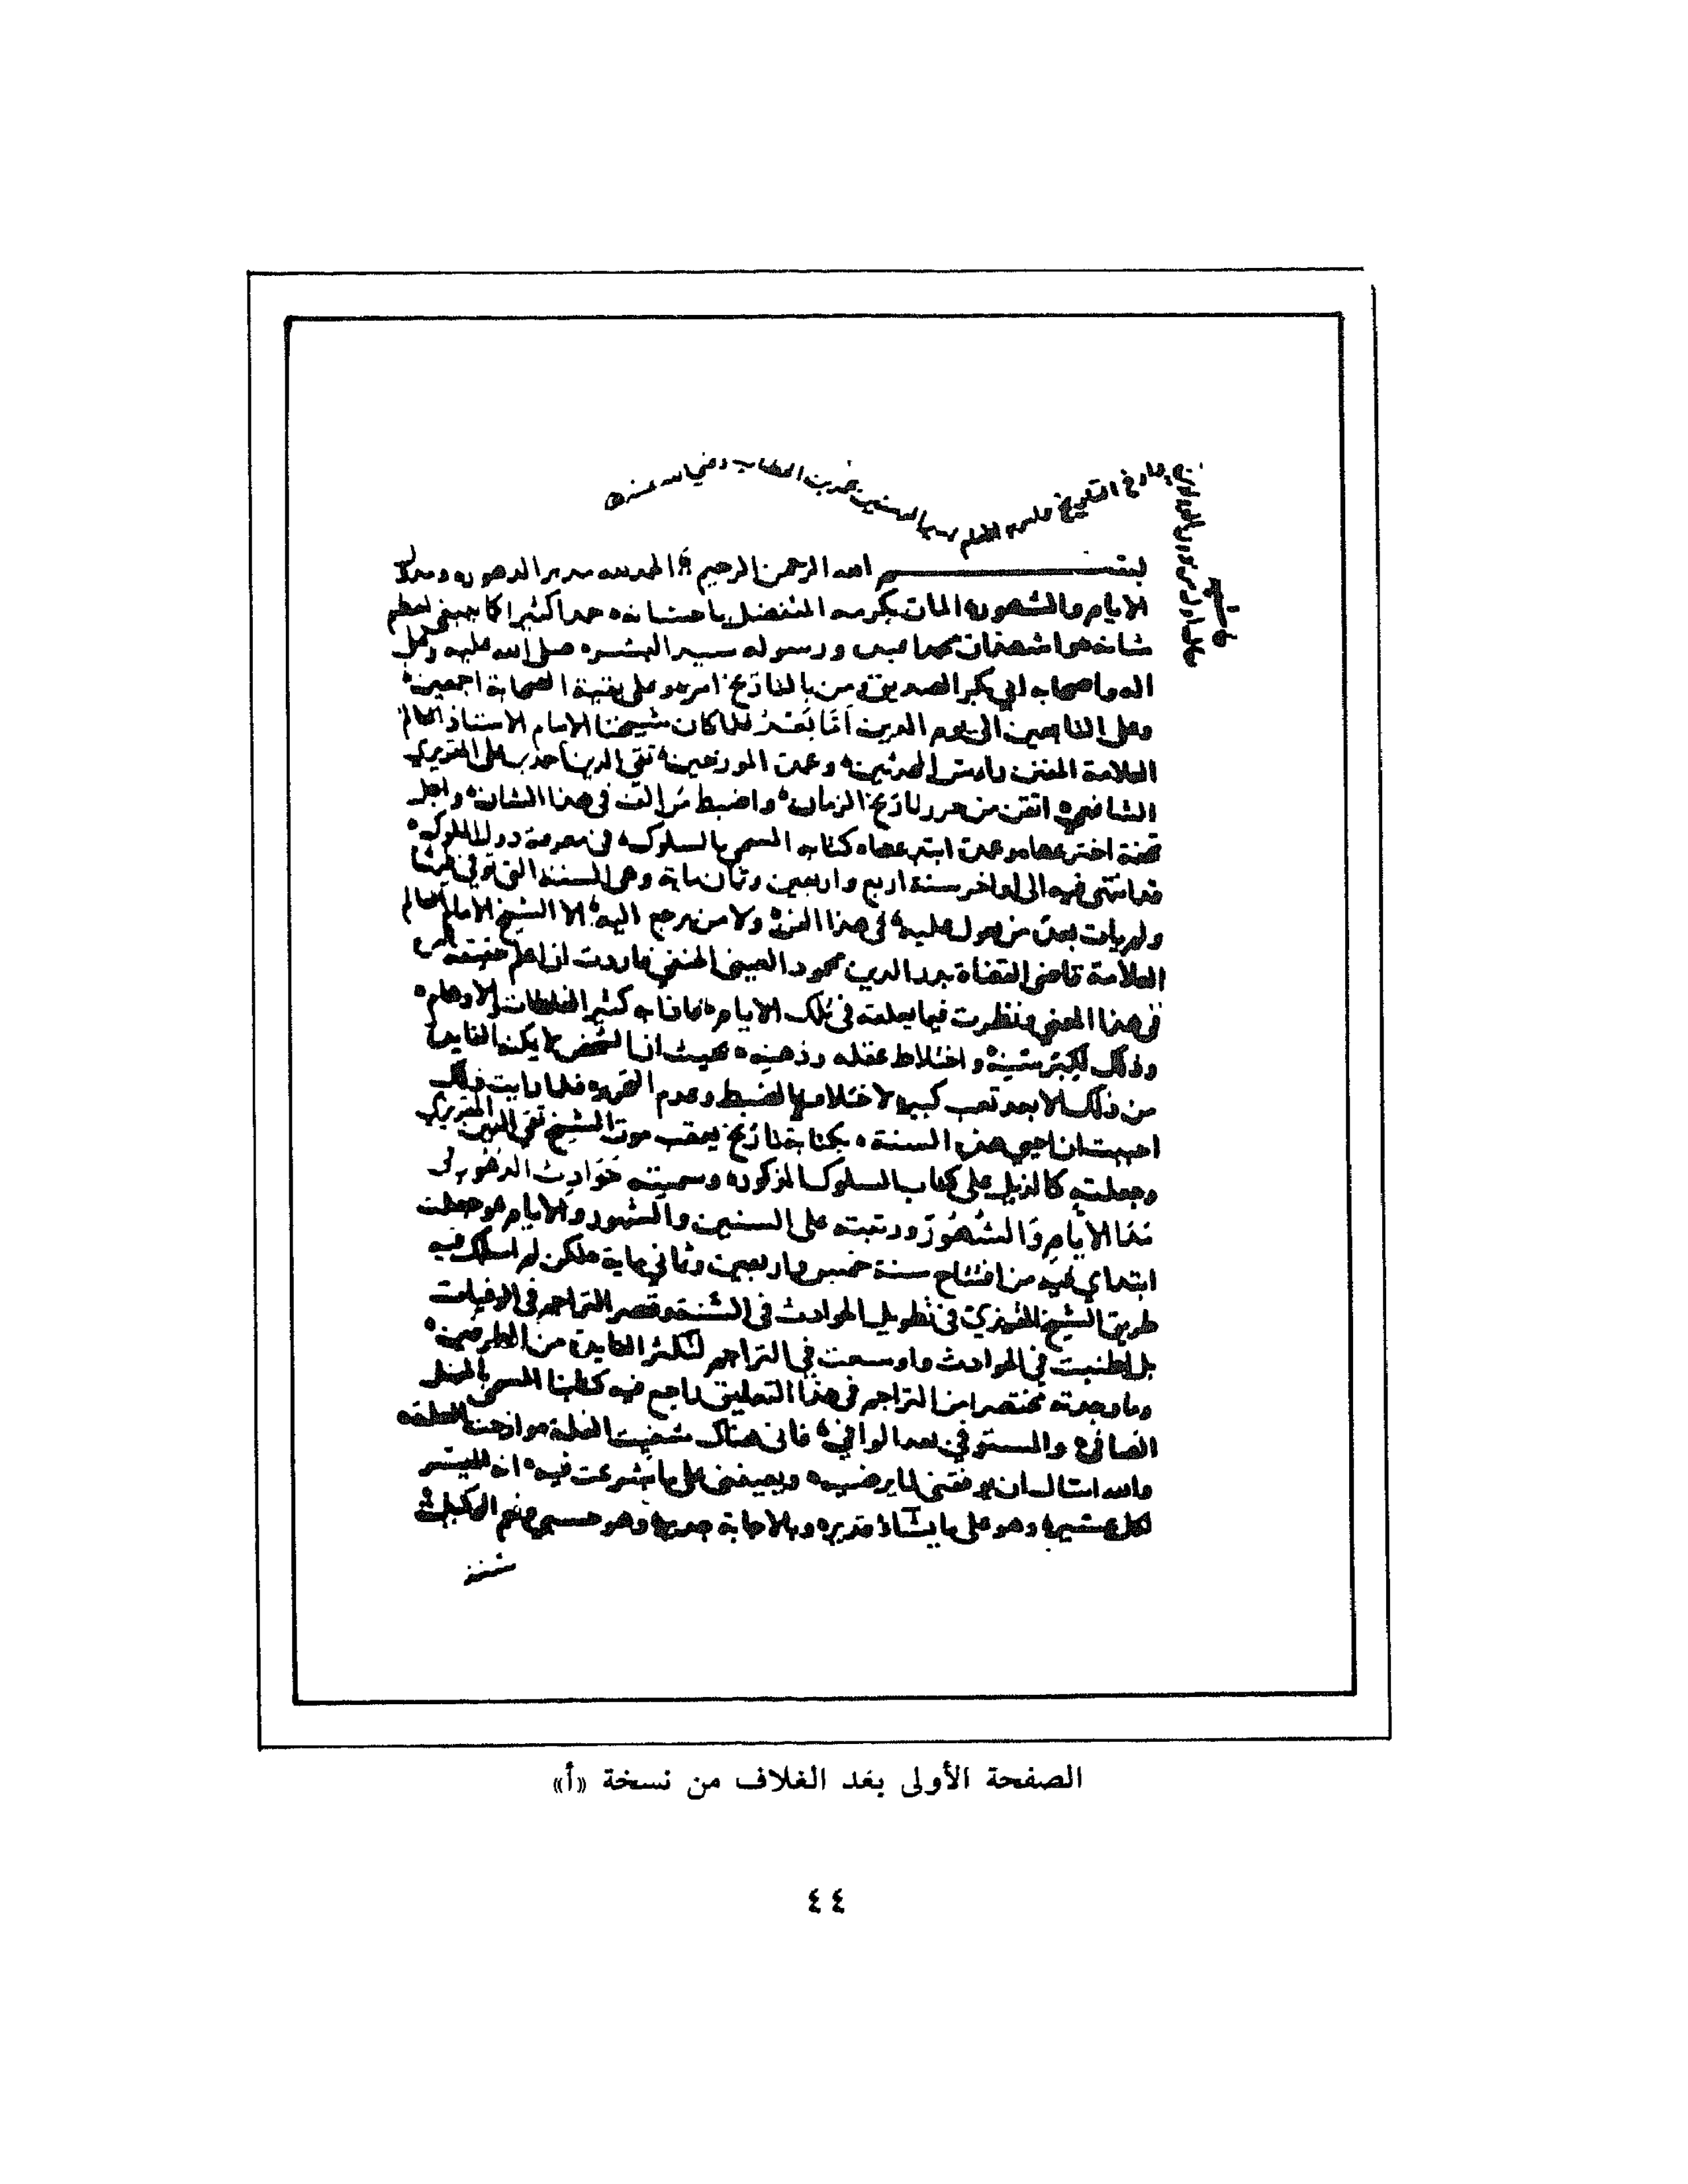 في التاريخ
امير المومنين عمر بن الخطاب رضي الله عنه
بسم الله الرحمن الرحيم الحمد لله مدبر الدهور ومدول
الايام والشهور المان بكرمه المتفضل باحسانه حمدا كثيرا كما ينبغي لعظم
شانه واشهد ان محمدا عبده ورسوله سيد البشر صلى الله عليه وعلى
اله واصحابه ابي بكر الصديق ومن بالتاريخ امر وعلى بقية الصحابة اجمعين
وعلى التابعين الى يوم الدين اما بعد فلما كان شيخنا الامام الاستاذ العالم
العلامة المفنن راس المحدثين وعمدة المورخين تقي الدين احمد بن علي المقريزي
الشافعي اتقن من حرر تاريخ الزمان واضبط من الف في هذا الشان واجل
تحفة اخترعها وعمدة ابتدعها كتابه المسمى بالسلوك في معرفة دول الملوك
قد انتهى فيه الى اواخر سنة اربع واربعين وثمان ماية وهي السنة التي توفي فيها
ولم يات بعده من يعول عليه في هذا الفن ولا من يرجع اليه الا الشيخ الامام العالم
العلامة قاضي القضاة بدر الدين محمود العيني الحنفي فاردت ان اعلم حقيقة امره
في هذا المعنى ونظرت فيما يعلقه في تلك الايام فاذا به كثير الغلطات والاوهام
وذلك لكبر سنه واختلاط عقله وذهنه بحيث ان الشخص لا يمكنه الفايدة
من ذلك الا بعد تعب كبير لاختلاف الضبط وعدم التحرير فلما رايت ذلك
احببت ان احيي هذه السنة بكتابة تاريخ يعقب موت الشيخ تقي الدين المقريزي
وجعلته كالذيل على كتاب السلوك المذكور وسميته حوادث الدهور في
مدا الايام والشهور ورتبته على السنين والشهور والايام وجعلت
ابتداي فيه من افتتاح سنة خمس واربعين وثماني ماية ولكن لم اسلك فيه
طريق الشيخ المقريزي في تطويل الحوادث في السنة وقصر التراجم في الوفيات
بل اطنبت في الحوادث واوسعت في التراجم لتكثر الفايدة من الطرفين
وما وجدته مختصرا من التراجم في هذا التعليق راجع فيه كتابنا المسمى بالمنهل
الصافي والمستوفي بعد الوافي فاني هناك شفيت الغلة وازحت العلة
والله اسال ان يوفقني لما يرضيه ويعينني على ما شرعت فيه انه الميسر
لكل عسير وهو على ما يشاء قدير وبالاجابة جدير وهو حسبي ونعم الوكيل
سنة
الصفحة الأولى بعد الغلاف من نسخة «أ»
٤٤